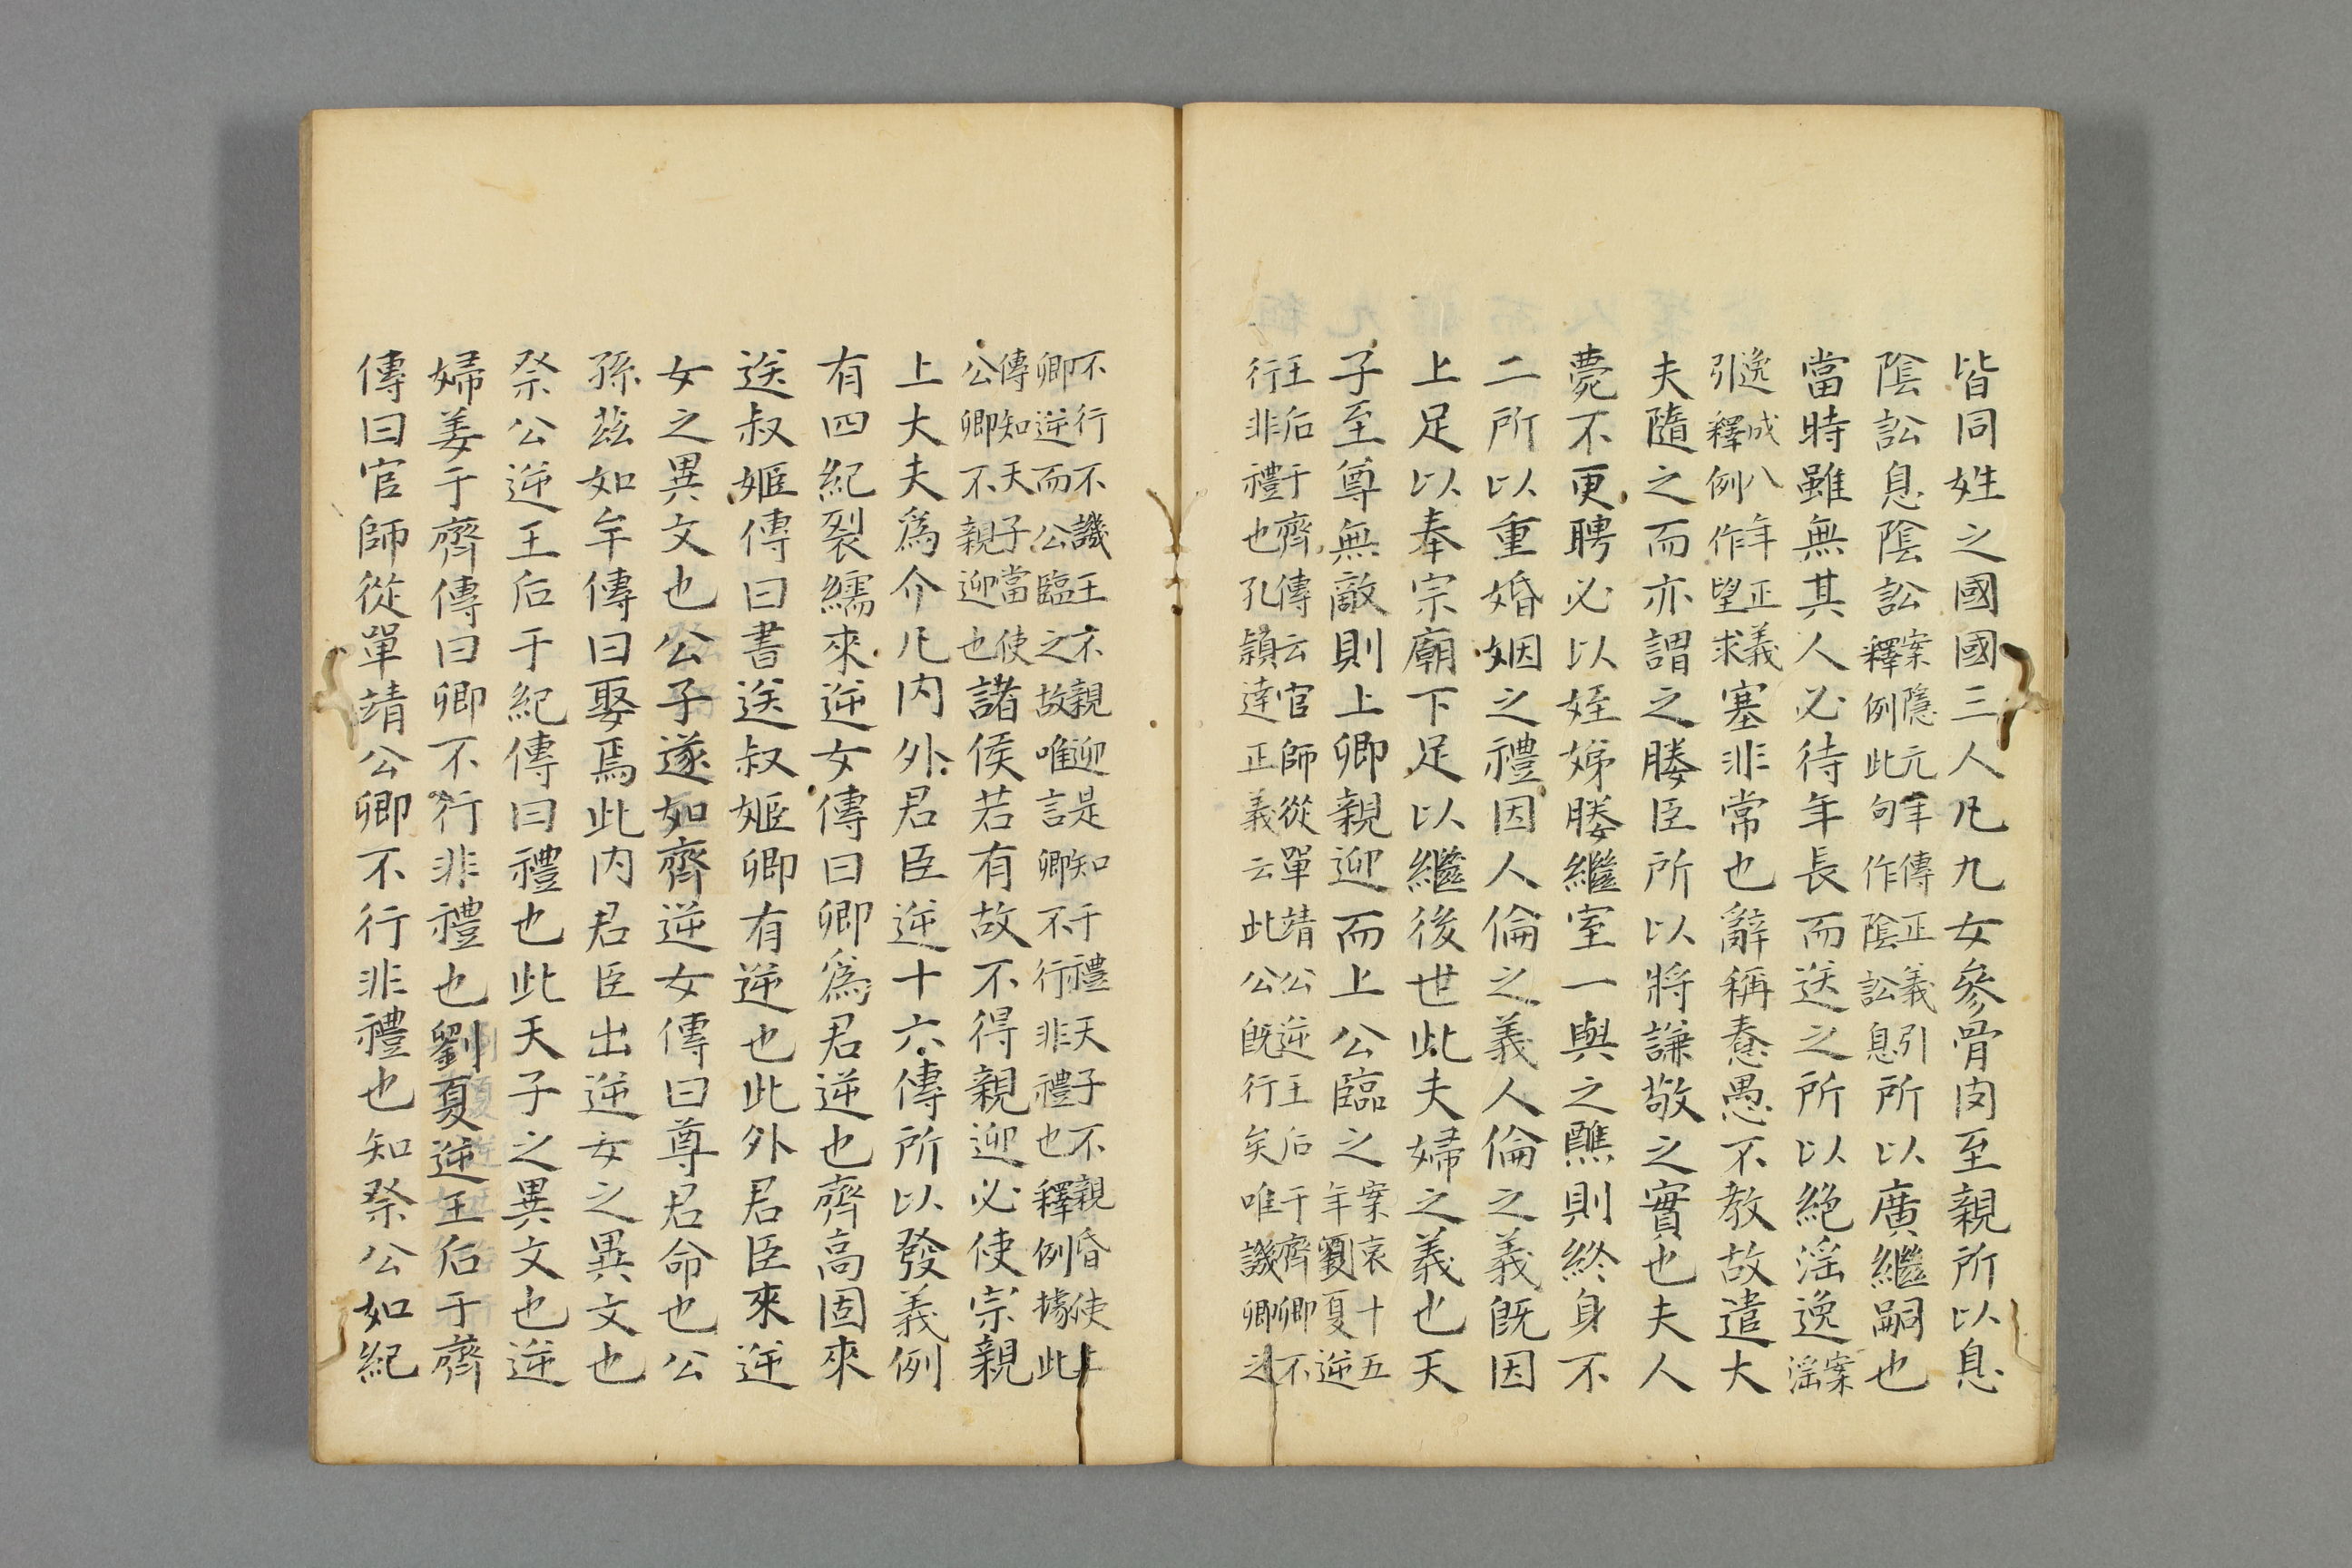 皆同姓之國國三人凡九女參骨肉至親所以息
陰訟息陰訟案隱元年傳正義引釋例此句作陰訟息所以廣繼嗣也
當時雖無其人必待年長而送之所以絶淫逸案淫
逸成八年正義引釋例作望求塞非常也辭稱惷愚不教故遣大
夫隨之而亦謂之媵臣所以將謙敬之實也夫人
薨不更聘必以姪娣媵繼室一與之醮則終身不
二所以重婚姻之禮因人倫之義人倫之義既因
上足以奉宗廟下足以繼後世此夫婦之義也天
子至尊無敵則上卿親迎而上公臨之案襄十五年劉夏逆
王后于齊傳云官師從單靖公逆王后于齊卿不行非禮也孔穎達正義云此公既行矣唯譏卿之
不行不譏王不親迎是知于禮天子不親昏使上卿逆而公臨之故唯言卿不行非禮也釋例據此
傳知天子當使公卿不親迎也諸侯若有故不得親迎必使宗親
上大夫爲介凡内外君臣逆十六傳所以發義例
有四紀裂繻來逆女傳曰卿爲君逆也齊高固來
送叔姬傳曰書送叔姬卿有逆也此外君臣來逆
女之異文也公子遂如齊逆女傳曰尊君命也公
孫茲如牟傳曰娶焉此内君臣出逆女之異文也
祭公逆王后于紀傳曰禮也此天子之異文也逆
婦姜于齊傳曰卿不行非禮也劉夏逆王后于齊
傳曰官師從單靖公卿不行非禮也知祭公如紀